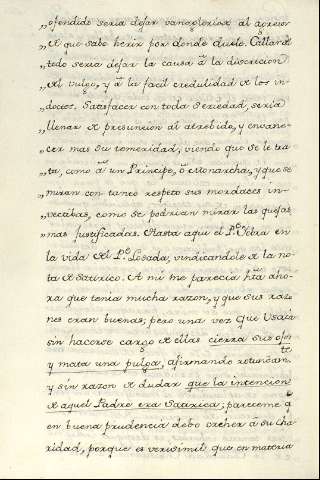 „ofendido seria dejar vanaglorioso al agresor
„de que sabe herir por donde duele. Callarlo
„todo seria dejar la causa â la discrecion
„del vulgo, y â la facil credulidad de los in-
„docios. Satisfacer con toda seriedad, seria
„llenar de presuncion al atrebido, y envane-
„cer mas su temeridad, viendo que se le tra-
„ta, como â un Principe, ô â Monarcha, y que se
„miran con tanto respeto sus mordaces in-
„vectabas, como se podrian mirar las quejas
„mas justificadas. Hasta aqui el Pe. Yebra en
la vida del Pe. Losada, vindicandole de la no-
ta de Satirico. A mi me parecia hta aho-
ra que tenia mucha razon, y que sus razo-
nes eran buenas; pero una vez que Usaia
sin hacerse cargo de ellas cierra sus ojos
y mata una pulga, afirmando rotundamte
y sin razon de dudar que la intencion
de aquel Padre era Satirica; pareceme q
en buena prudencia debo creher â su cha-
ridad, porque es verisimil que en materia